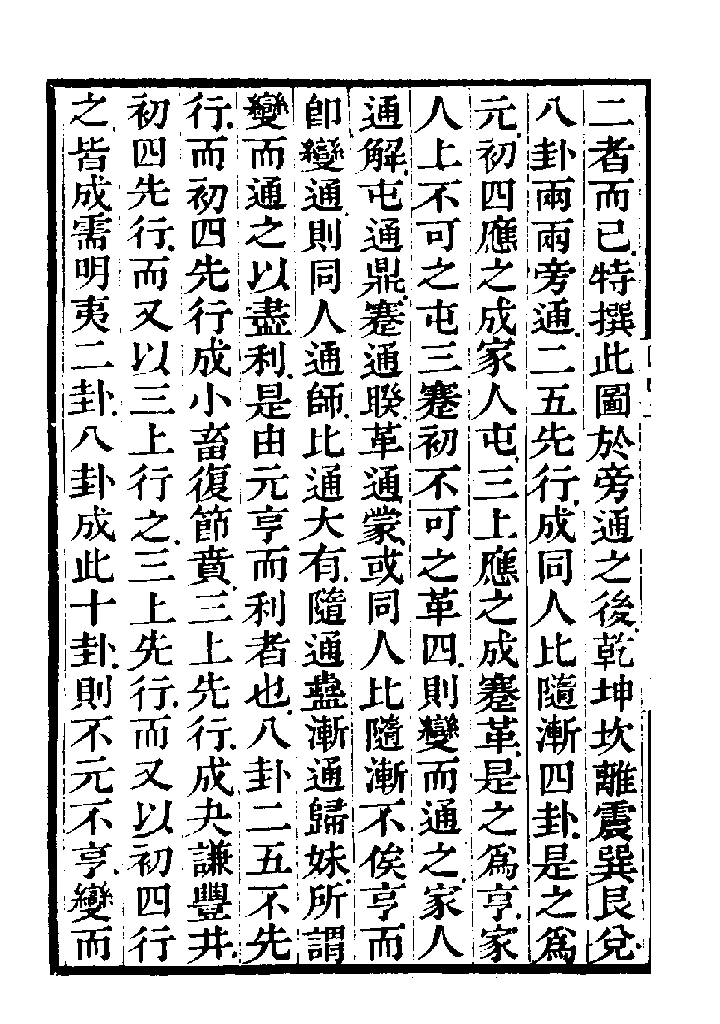 二者而已特撰此圖於旁通之後乾坤坎離震巽艮兌
八卦兩兩旁通二五先行成同人比隨漸四卦是之爲
元初四應之成家人屯三上應之成蹇革是之爲亨家
人上不可之屯三蹇初不可之革四則變而通之家人
通解屯通鼎蹇通睽革通蒙或同人比隨漸不俟亨而
卽變通則同人通師比通大有隨通蠱漸通歸妹所謂
變而通之以盡利是由元亨而利者也八卦二五不先
行而初四先行成小畜復節賁三上先行成夬謙豐井
初四先行而又以三上行之三上先行而又以初四行
之皆成需明夷二卦八卦成此十卦則不元不亨變而